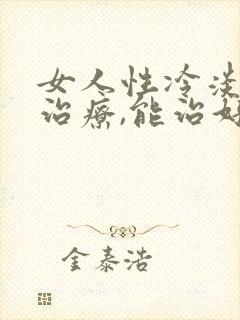 女人性冷淡
治疗,能治好
金泰浩